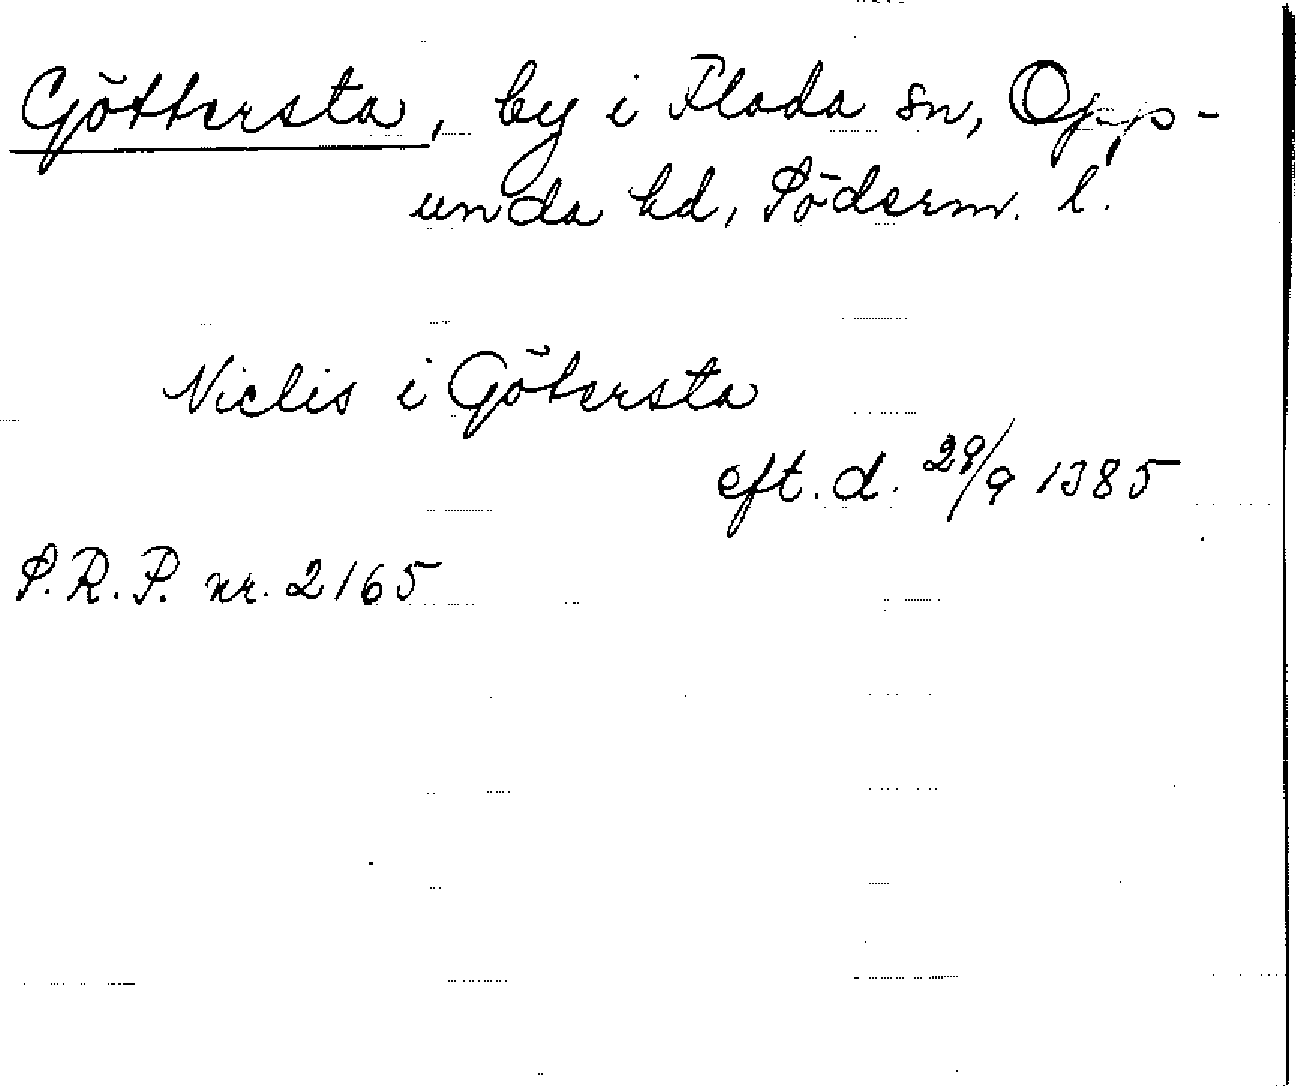 Göttersta, by i Floda sn, Opp-
unda hd, Söderm. l.
Niclis i Götersta
eft. d. 29/9 1385
S.R.P. nr. 2165